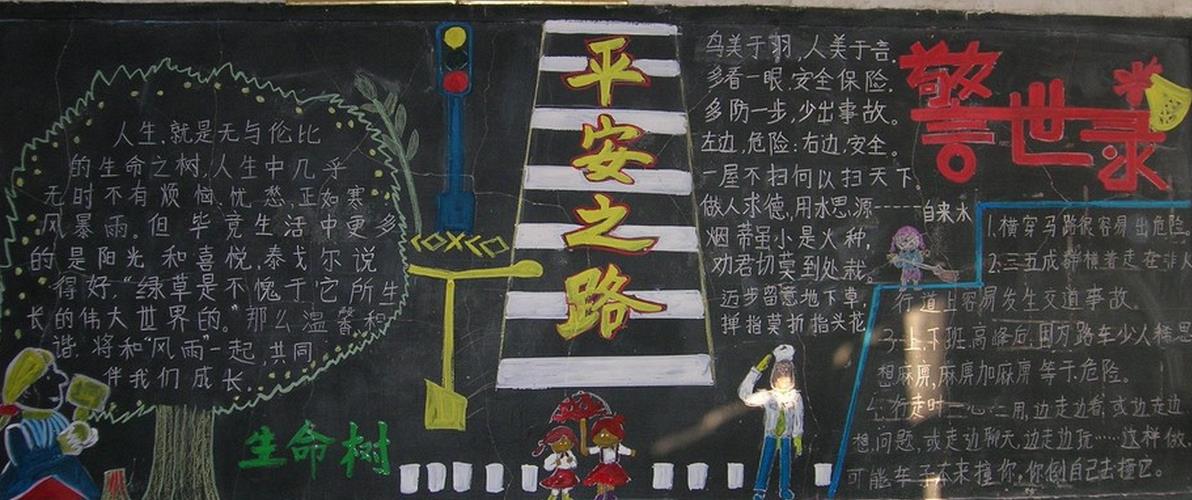 人生，就是无与伦比
的生命之树，人生中几乎
无时不有烦恼、忧愁，正如寒
风暴雨。但毕竟生活中更多
的是阳光和喜悦，泰戈尔说
得好，“绿草是不愧于它所生
长的伟大世界的。”那么温馨和
谐，将和“风雨”一起，共同
伴我们成长。
生命树
平安之路
鸟美于羽，人美于言，
多看一眼，安全保险，
多防一步，少出事故。
左边，危险：右边，安全。
一屋不扫何以扫天下。
做人求德，用水思源------自来水
烟蒂虽小是火种，
劝君切莫到处栽，
迈步留意地下草，
掸指莫折指头花
警世录
1.横穿马路很容易出危险。
2.三五成群横着走在非人
行道上容易发生交通事故。
3.上、下班高峰后，因万路车少人稀思
想麻痹，麻痹加麻痹等于危险。
4.行走时一心二用，边走边看，或边走边
想问题，或走边聊天，边走边玩……这样做，
可能车子本来撞你，你倒自己去撞它。